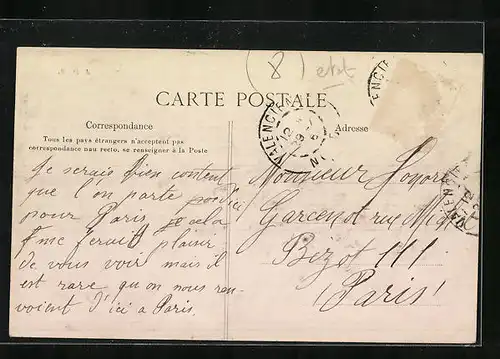 (8) etat
CARTE POSTALE
Correspondance
Adresse
Tous les pays étrangers n'acceptent pas
correspondance nau recto, se renseigner à la Poste
Je serais bien content
que l'on parte
pour Paris cela
me ferait plaisir
de vous voir mais il
est rare que on nous ren-
voient d'ici a Paris.
Monsieur
Garcenot rue
Bizot 111
Paris
VALENCIE
ENCIE
VALEN